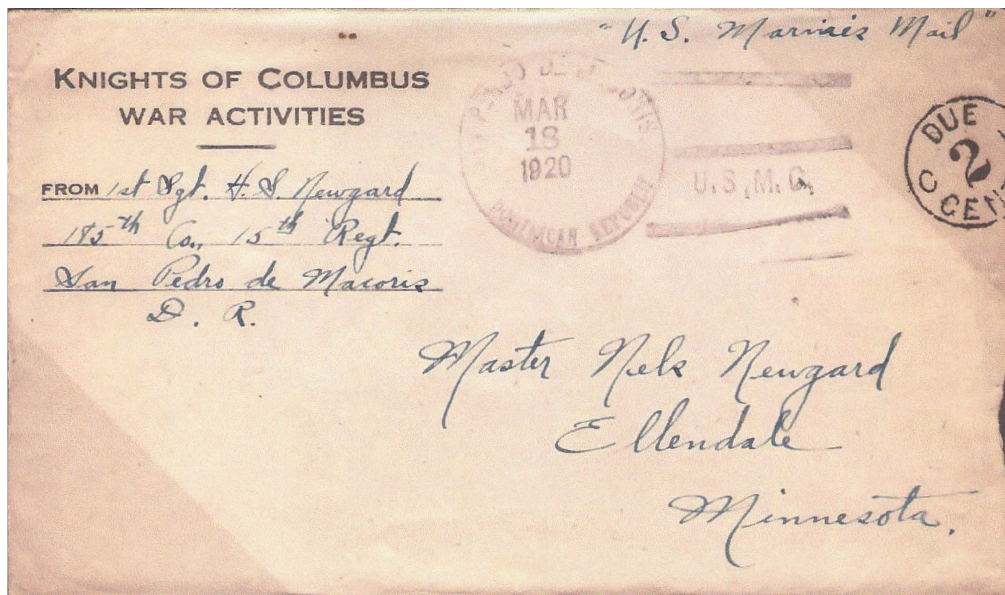 "U. S. Marines Mail"
KNIGHTS OF COLUMBUS
WAR ACTIVITIES
FROM 1st Sgt. H. S. Newgard
185th Co., 15th Regt.
San Pedro de Macoris
D. R.
SAN PEDRO DE MACORIS
MAR
18
1920
DOMINICAN REPUBLIC
U.S.M.C.
DUE
2
CEN
Master Nels Newgard
Ellendale
Minnesota.